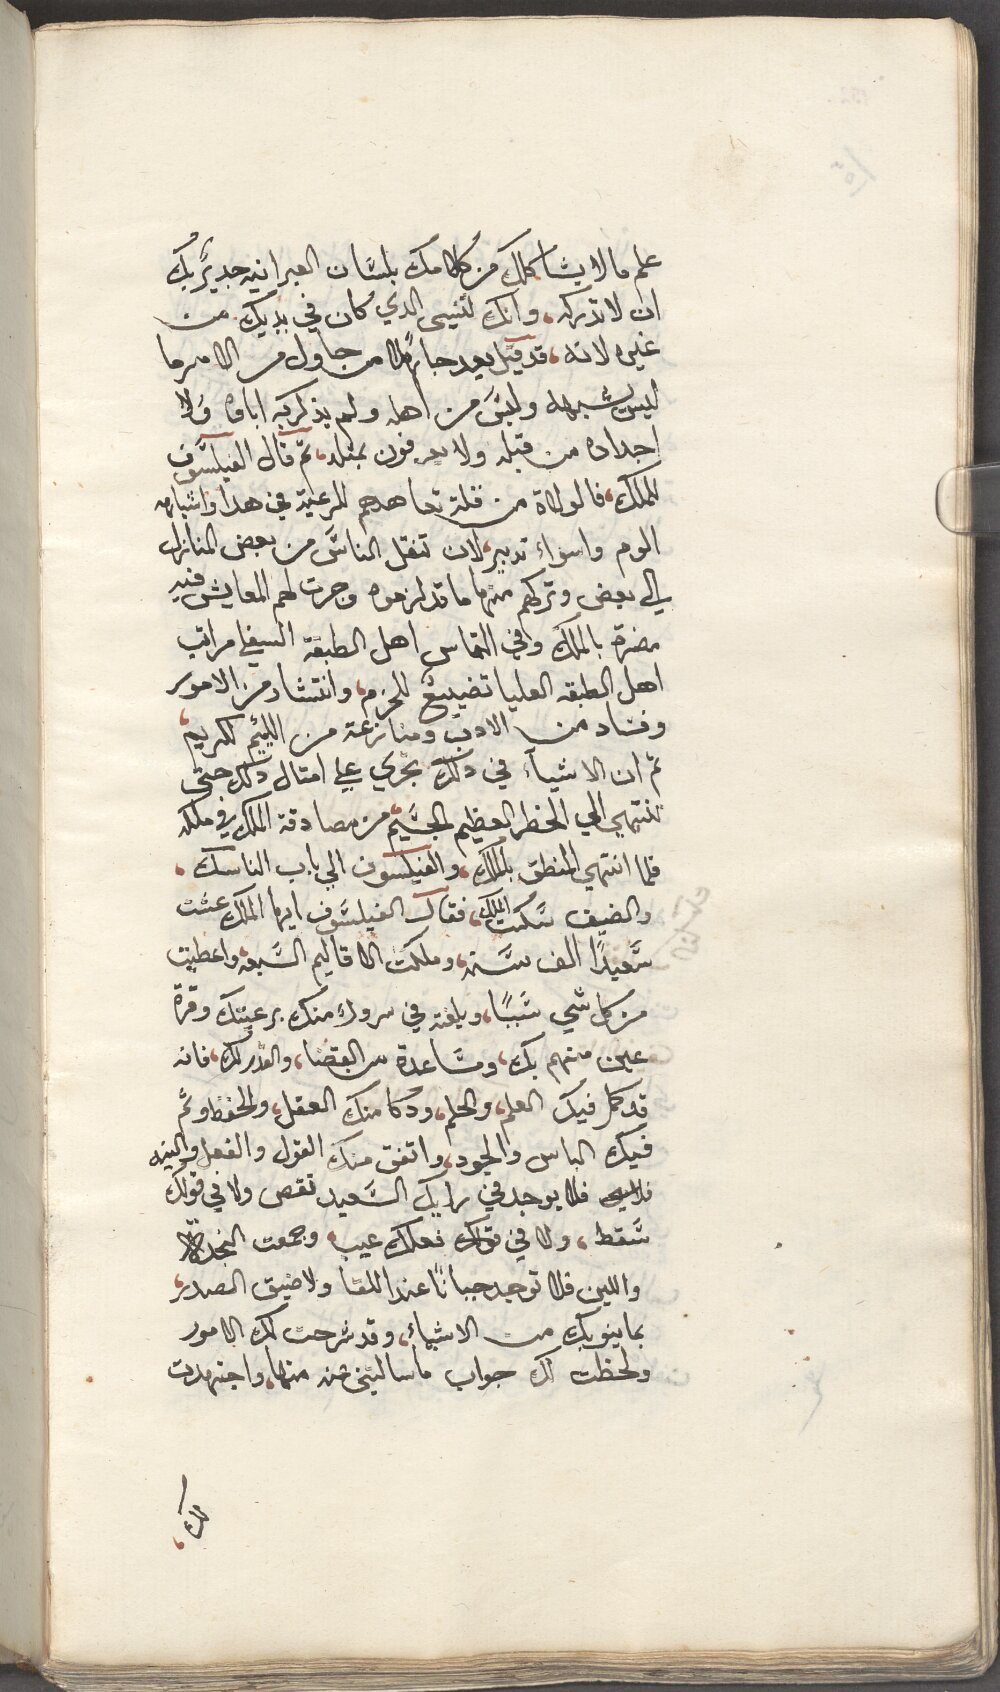 علم ما لا يشاكلك من كلامك بلسان العبرانيه جديرٌ بك
ان لا تدركه، وانك لتنسى الدي كان في يديك من
غيره لانه، قد قيل يعد جاهلا من حاول من الامر ما
ليس يشبهه وليس من اهله ولم يذكر به اباوه ولا
اجداده من قبله ولا يعرفون بمثله، ثم قال الفيلسوف
للملك، فالولاة من قلة تعاهدهم للرعية في هدا واشباهه
الوم واسواء تدبير، لان تنقل الناس من بعض المنازل
الي بعض وتركهم منها ما قد لزموه وجرت لهم المعايش فيه
مضرة بالملك وفي التماس اهل الطبقة السفلي مراتب
اهل الطبقه العليا تضييعٌ للحزم، وانتشار من الامور
وفساد من الادب ومنازعة من الليئم للكريم،
ثم ان الاشيآء في دلك تجري علي امتال دلك حتى
تنتهي الي الخطر العظيم الجسيم من مصادقة الملك في ملكه
فلما انتهي المنطق بالملك، والفيلسوف الي باب الناسك،
والضيف سكت الملك، فقال الفيلسوف ايها الملك عشت
سعيدًا الف سنه، وملكت الاقاليم السبعه واعطيت
من كل شي سببًا، وبلغته في سرور منك برعيتك وقرة
عين منهم بك، ومساعدة من القضا، والقدر لك، فانه
قد كمل فيك العلم، والحلم، ودكا منك العقل، والحفظ وتم
فيك الباس والجود، واتفق منك القول والفعل والنيه
فلا يوجد في رايك السعيد نقص ولا في قولك
سقط، ولا في فعلك عيب، وجمعت النجدة
واللين فلا توجد جبانًا عند اللقا ولا ضيق الصدر،
بما ينوبك من الاشياء، وقد شرحت لك الامور
ولخظت لك جواب ما سالتني عنه منها، واجتهدت
لك،